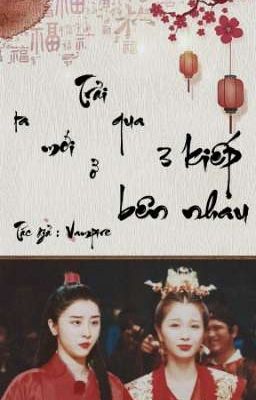 Trải qua 3 kiếp
ta mới ở bên nhau
Tác giả : Vampire